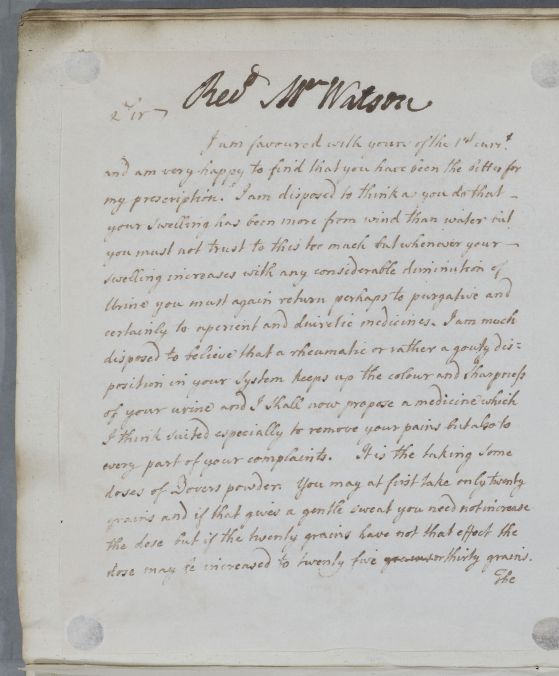 Revd. Mr. Watson
Sir
I am favoured with yours of the 1st curr.t
and am very happy to find that you have been the better for
my prescription. I am disposed to think as you do that
your swelling has been more from wind than water but
you must not trust to this too much but whenever your
swelling increases with any considerable diminution of
Urine you must again return perhaps to purgative and
certainly to aperient and diuretic medicines. I am much
disposed to believe that a rheumatic or rather a gouty dis=
position in your system keeps up the colour and sharpness
of your urine and I shall now propose a medicine which
I think suited especially to remove your pains but also to
every part of your complaints. It is the taking some
doses of Dovers powder. You may at first take only twenty
grains and if that gives a gentle sweat you need not increase
the dose but if the twenty grains have not that effect the
dose may be increased to twenty five grains or thirty grains.
The